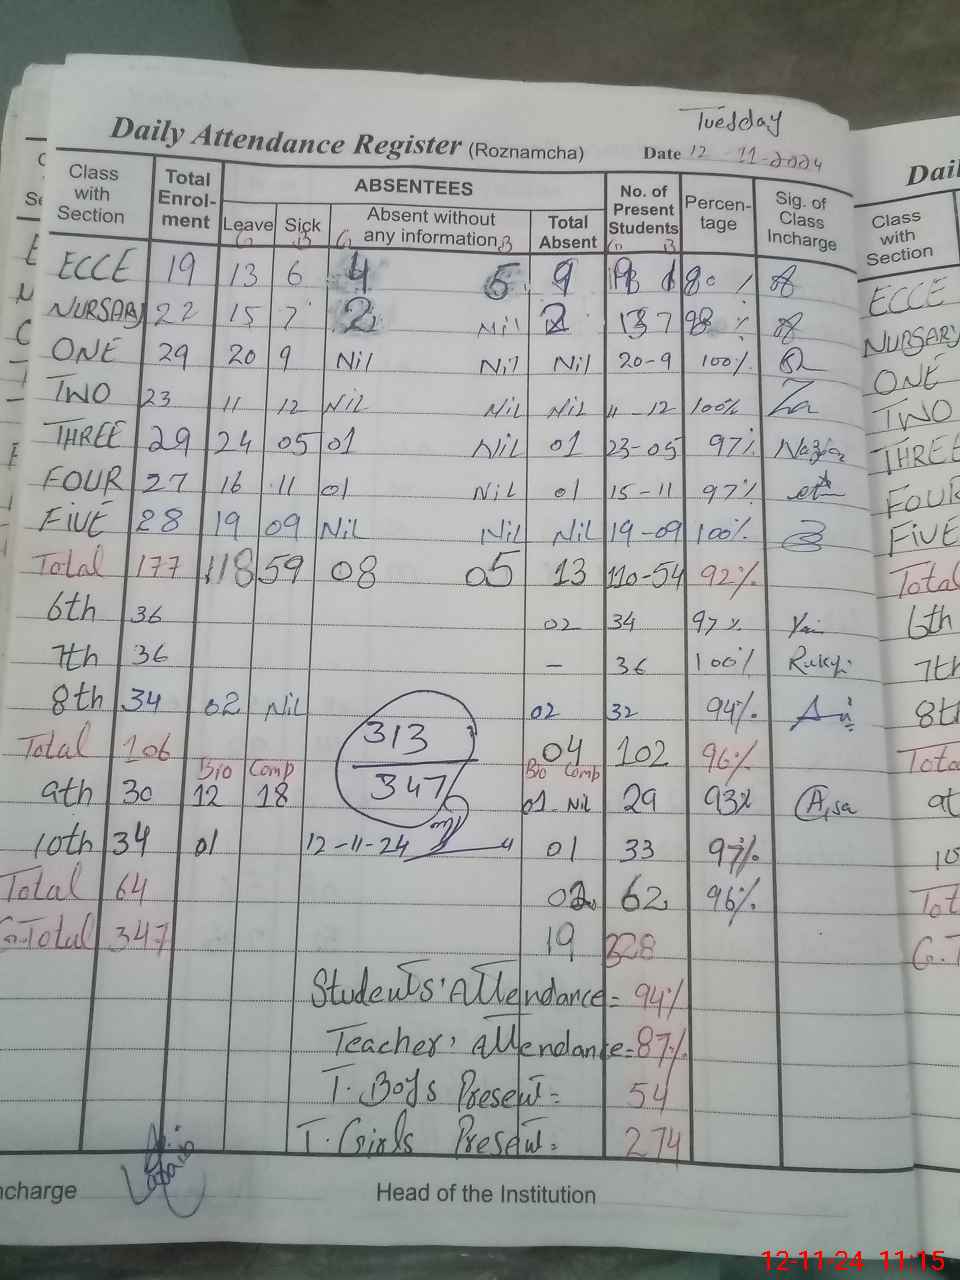 Tuesday
Daily Attendance Register (Roznamcha) Date 12-11-2024
Class with Section Total Enrol-ment ABSENTEES No. of Present Students Percen-tage Sig. of Class Incharge
Leave Sick Absent without any information Total Absent
G B G B G B
ECCE 19 13 6 4 5 9 80%
NURSARY 22 15 7 2 Nil 2 13 7 98%
ONE 29 20 9 Nil Nil Nil 20-9 100%
TWO 23 11 12 Nil Nil Nil 11-12 100%
THREE 29 24 05 01 Nil 01 23-05 97% Nazia
FOUR 27 16 11 01 Nil 01 15-11 97%
FIVE 28 19 09 Nil Nil Nil 19-09 100%
Total 177 118 59 08 05 13 110-54 92%
6th 36 02 34 97%
7th 36 — 36 100%
8th 34 02 Nil 02 32 94%
313
Total 106 04 102 96%
Bio Comp Bio Comp
347
9th 30 12 18 01-Nil 29 93%
10th 34 01 12-11-24 01 33 97%
Total 64 02 62 96%
G.Total 347 19 328
Students' Attendance = 94%
Teacher' Attendance = 87%
T. Boys Present = 54
T. Girls Present = 274
ncharge Head of the Institution
Dail
Class with Section
ECCE
NURSARY
ONE
TWO
THREE
FOUR
FIVE
Total
6th
7th
8th
Tota
9t
10
Tot
G.T
12-11-24 11:15